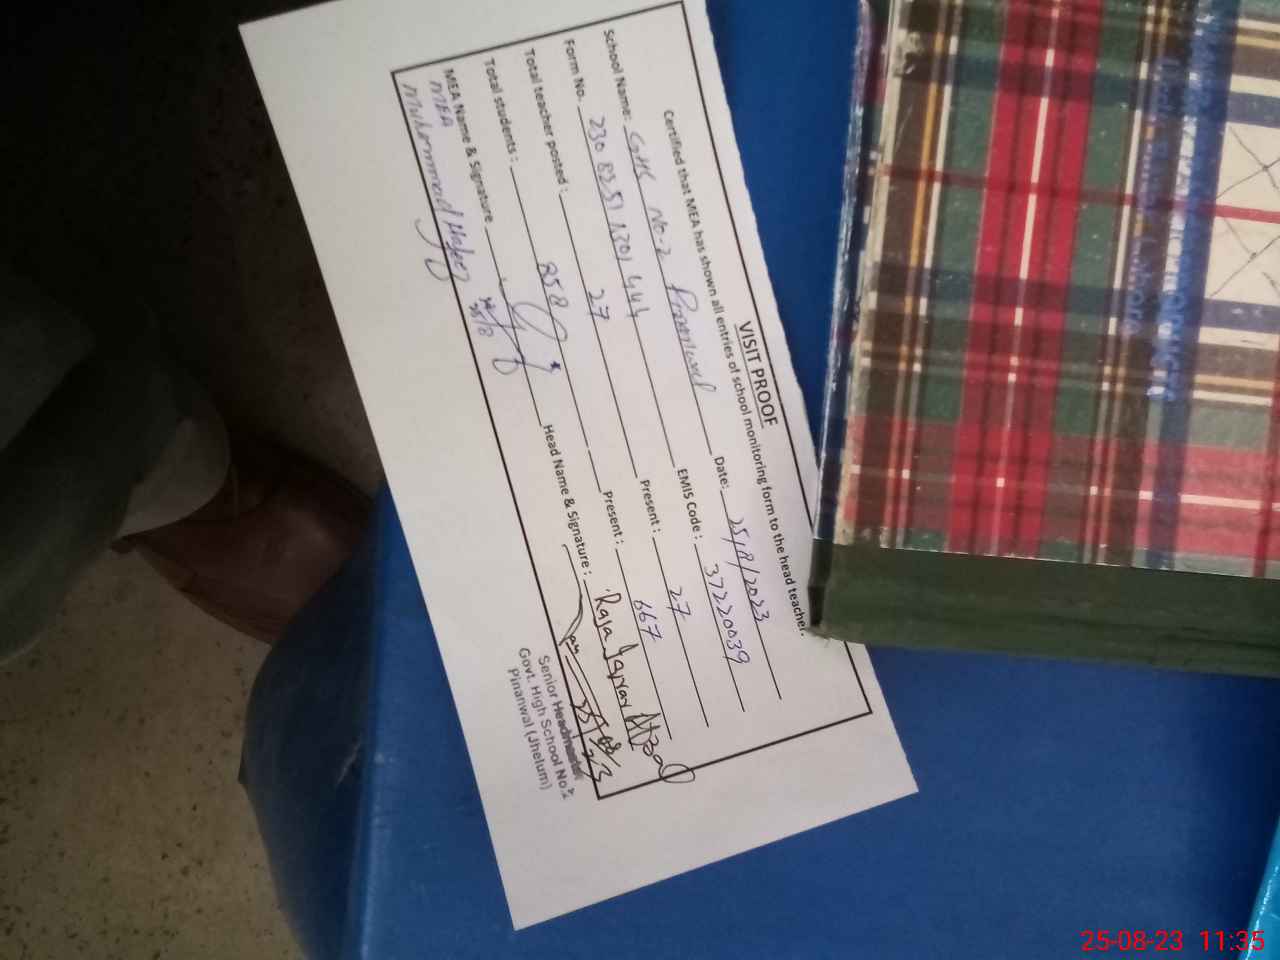 VISIT PROOF
Certified that MEA has shown all entries of school monitoring form to the head teacher.
School Name: GHS No-2 Pinanwal Date: 25/8/2023
Form No. 230 8251 1301 444 EMIS Code: 37220039
Total teacher posted: 27 Present: 27
Total students: 858 Present: 667
MEA Name & Signature Head Name & Signature: Raja
MEA
Muhammad Hafeez 25/8
25/08/23
Senior Headmaster
Govt. High School No.2
Pinanwal (Jhelum)
25-08-23 11:35